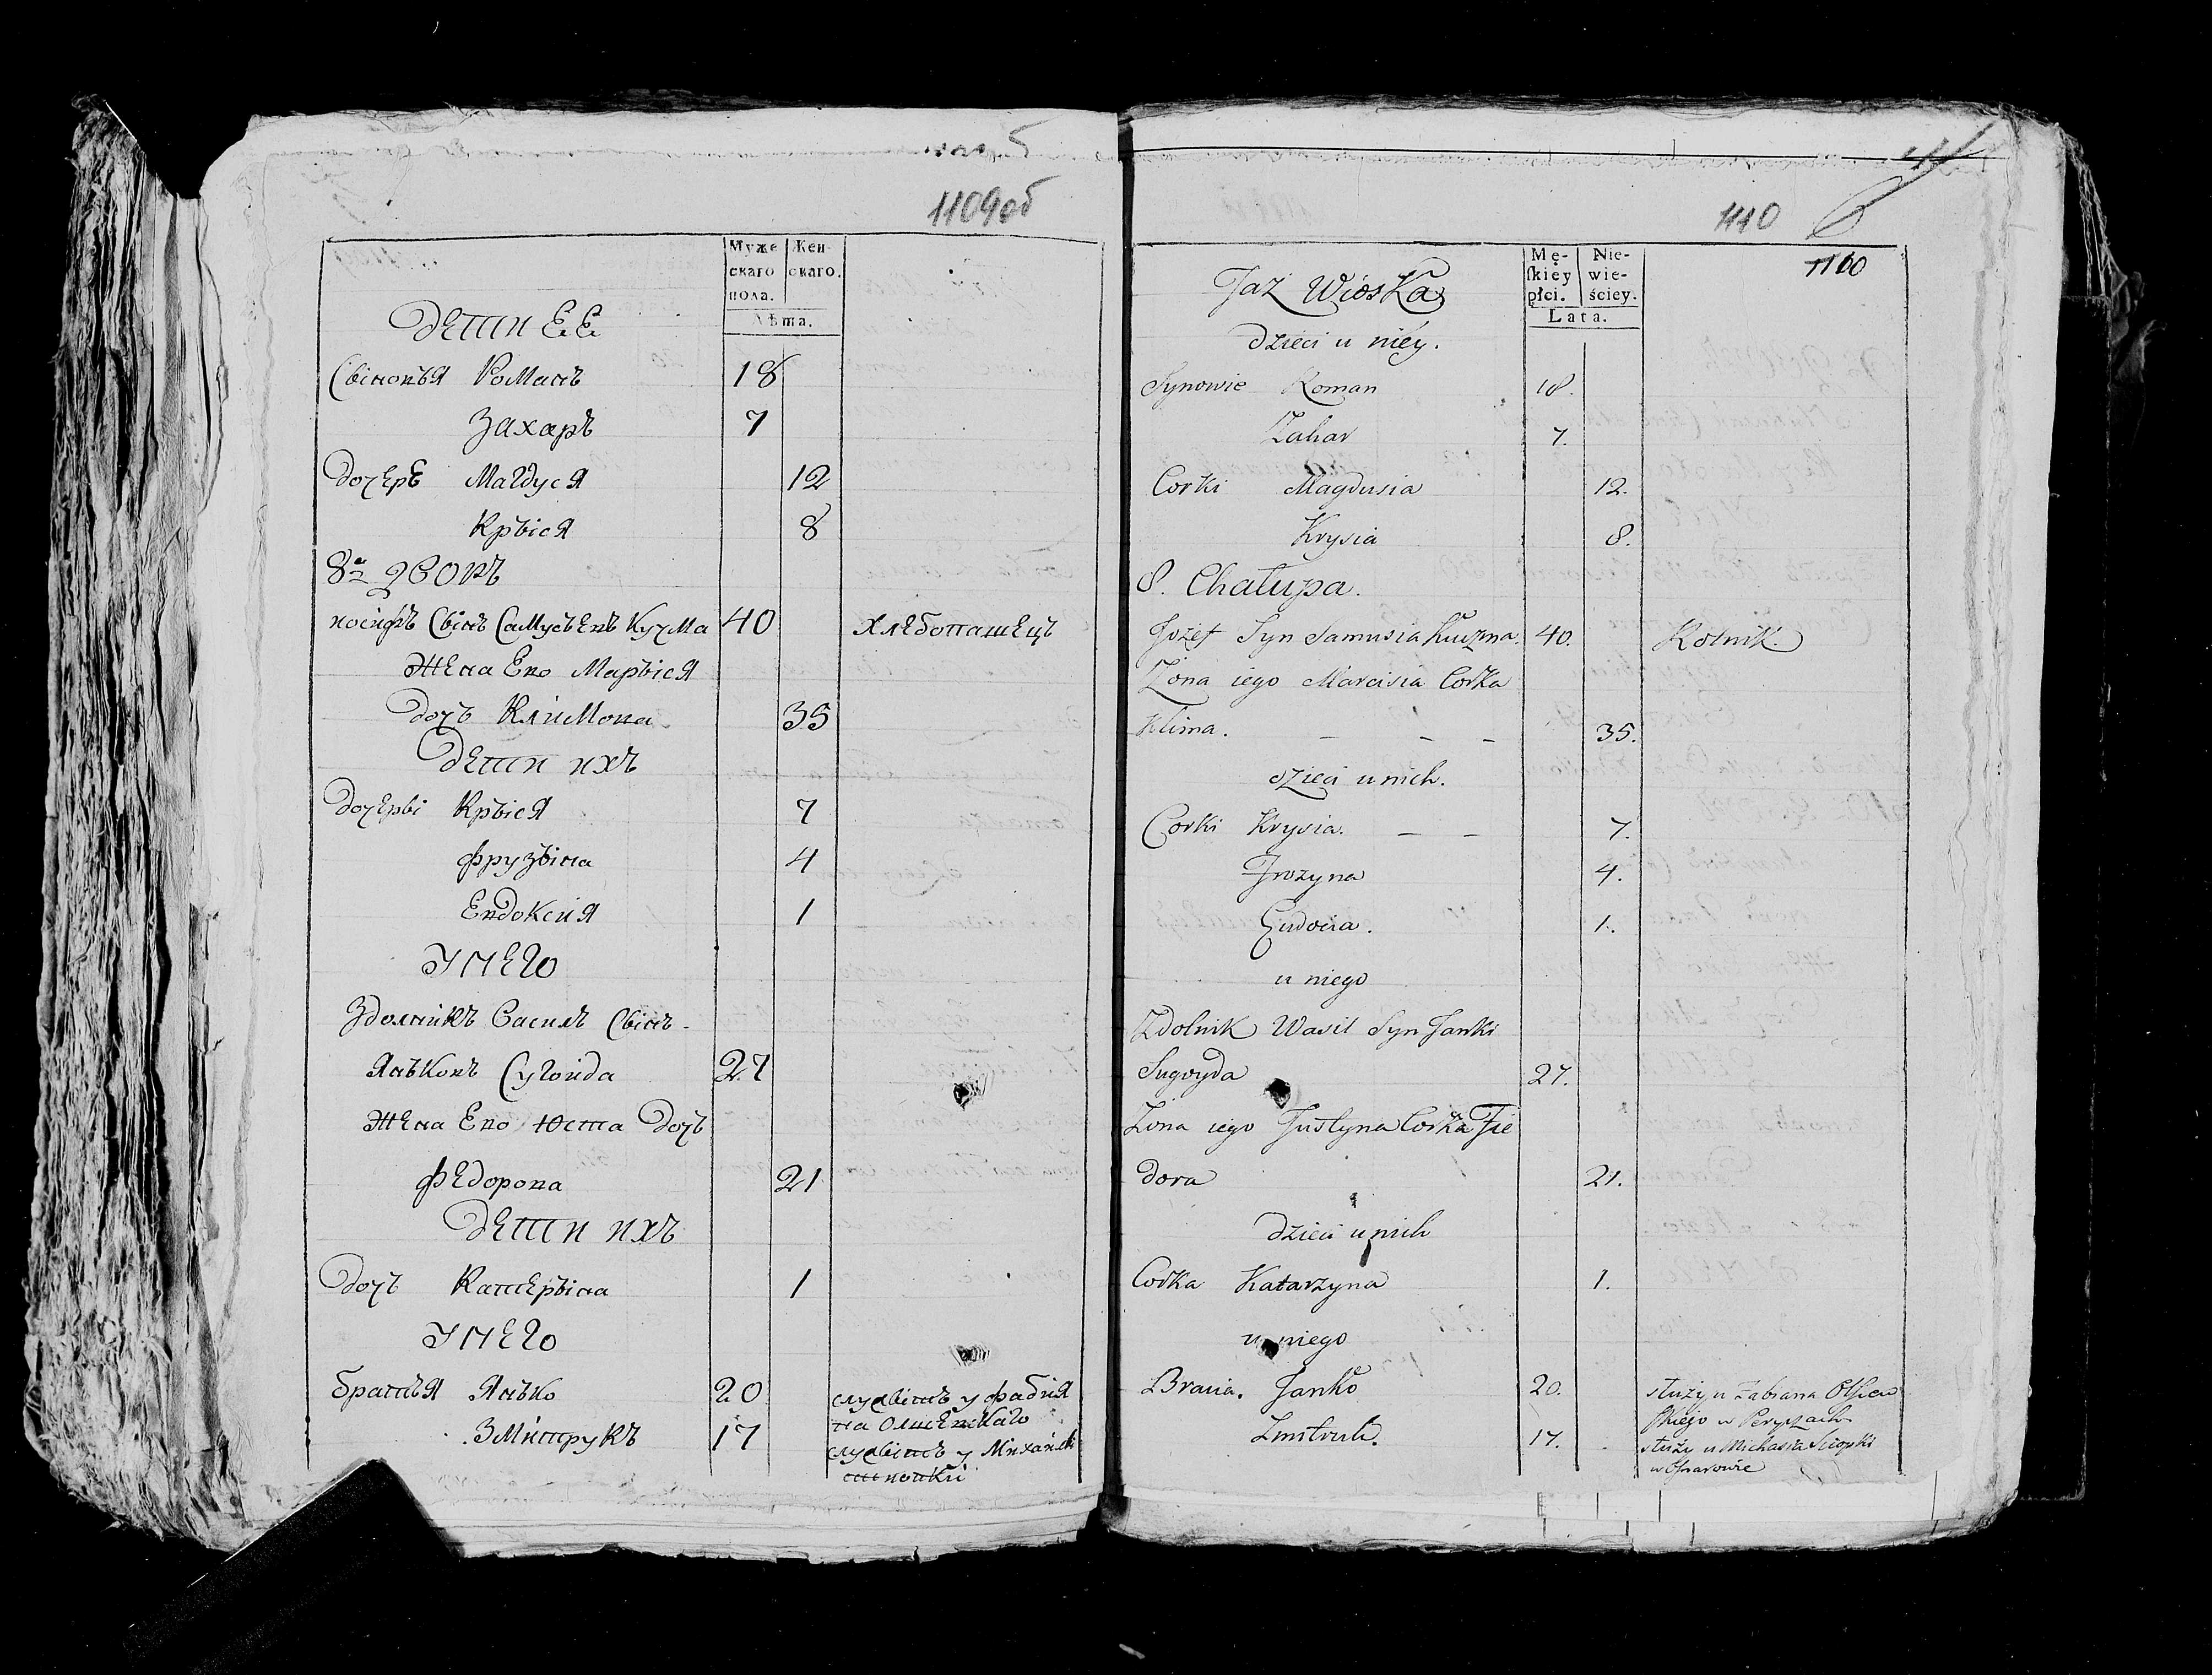 1109об
Муже
скаго
пола.
Жен-
скаго.
Лѣта.
Дети Ее
Сыновья Романъ 18
Захаръ 7
Дочерѣ Магдуся 12
Крыся 8
8й дворъ
Іосифъ Сынъ Самусевъ Кузма 40 хлебопашецъ
Жена Ево Марыся
Дочь Климова 35
Дети ихъ
Дочеры Крыся 7
Фрузына 4
Евдоксия 1
У него
Здолникъ Василь Сынъ
Яньковъ Сугоида 27
Жена Ево Юста Дочь
Федорова 21
Дети ихъ
Дочь Катерына 1
У него
братья Янько 20 служытъ у Фабия
на Олшевскаго
Змитрукъ 17 служытъ у Михайлы
1110
1100
Mę-
ſkiey
płci.
Nie-
wie-
ściey.
Lata.
Taż Wioska
dzieci u niey.
Synowie Roman 18.
Zahar 7.
Corki Magdusia 12.
Krysia 8.
8. Chałupa.
Jozef Syn Samusia Kuzma. 40. Rolnik.
Zona iego Marcisia Corka
Klima. – – – 35.
dzieci u nich.
Corki Krysia. – – 7.
Frozyna 4.
Eudocia. 1.
u niego
Zdolnik Wasil Syn Janki
Sugoyda 27.
Zona iego Justyna Corka Fie
dora 21.
dzieci u nich
Corka Katarzyna 1.
u niego
Bracia. Janko 20. służy u Fabiana Olszew
ſkiego w
Zmitruk. 17. służy u Michasia
w